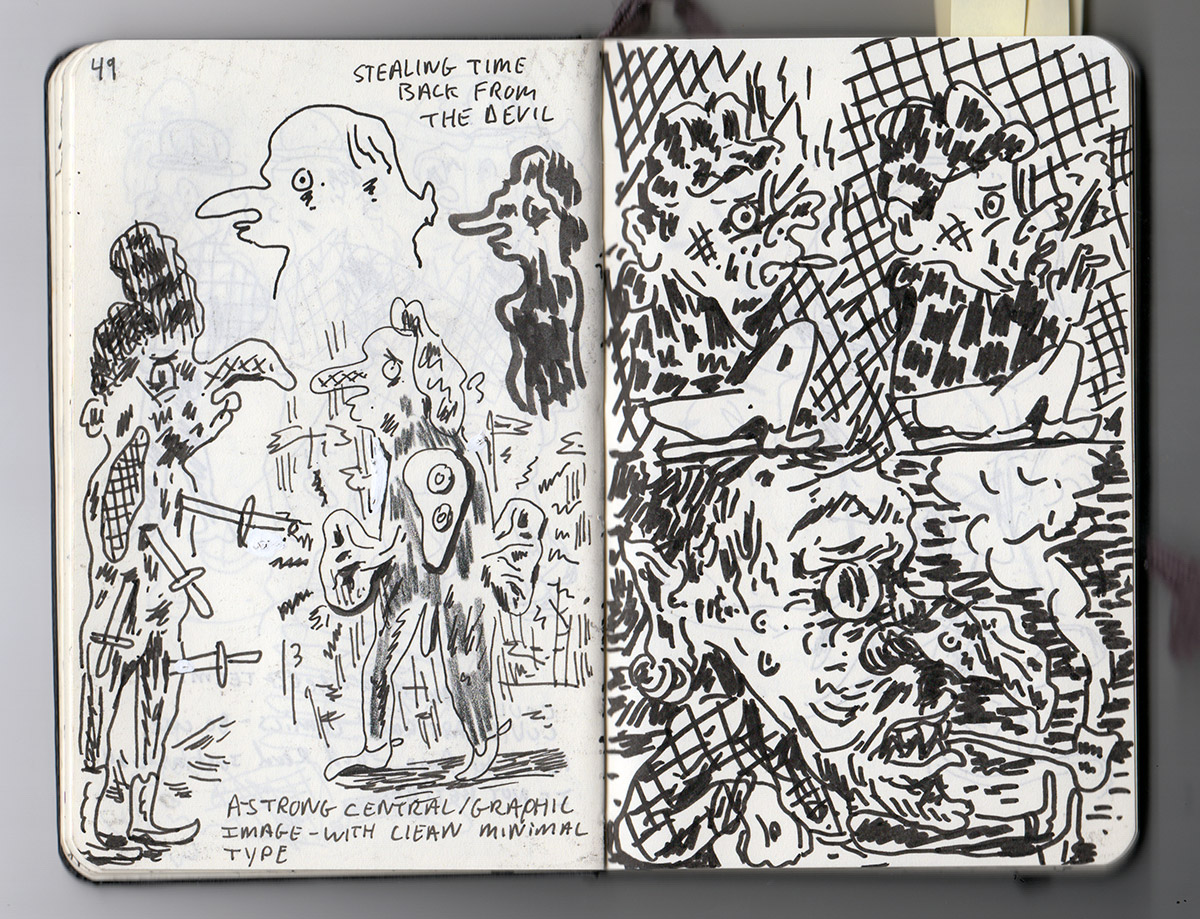 49
STEALING TIME
BACK FROM
THE DEVIL
A STRONG CENTRAL/GRAPHIC
IMAGE - WITH CLEAN MINIMAL
TYPE